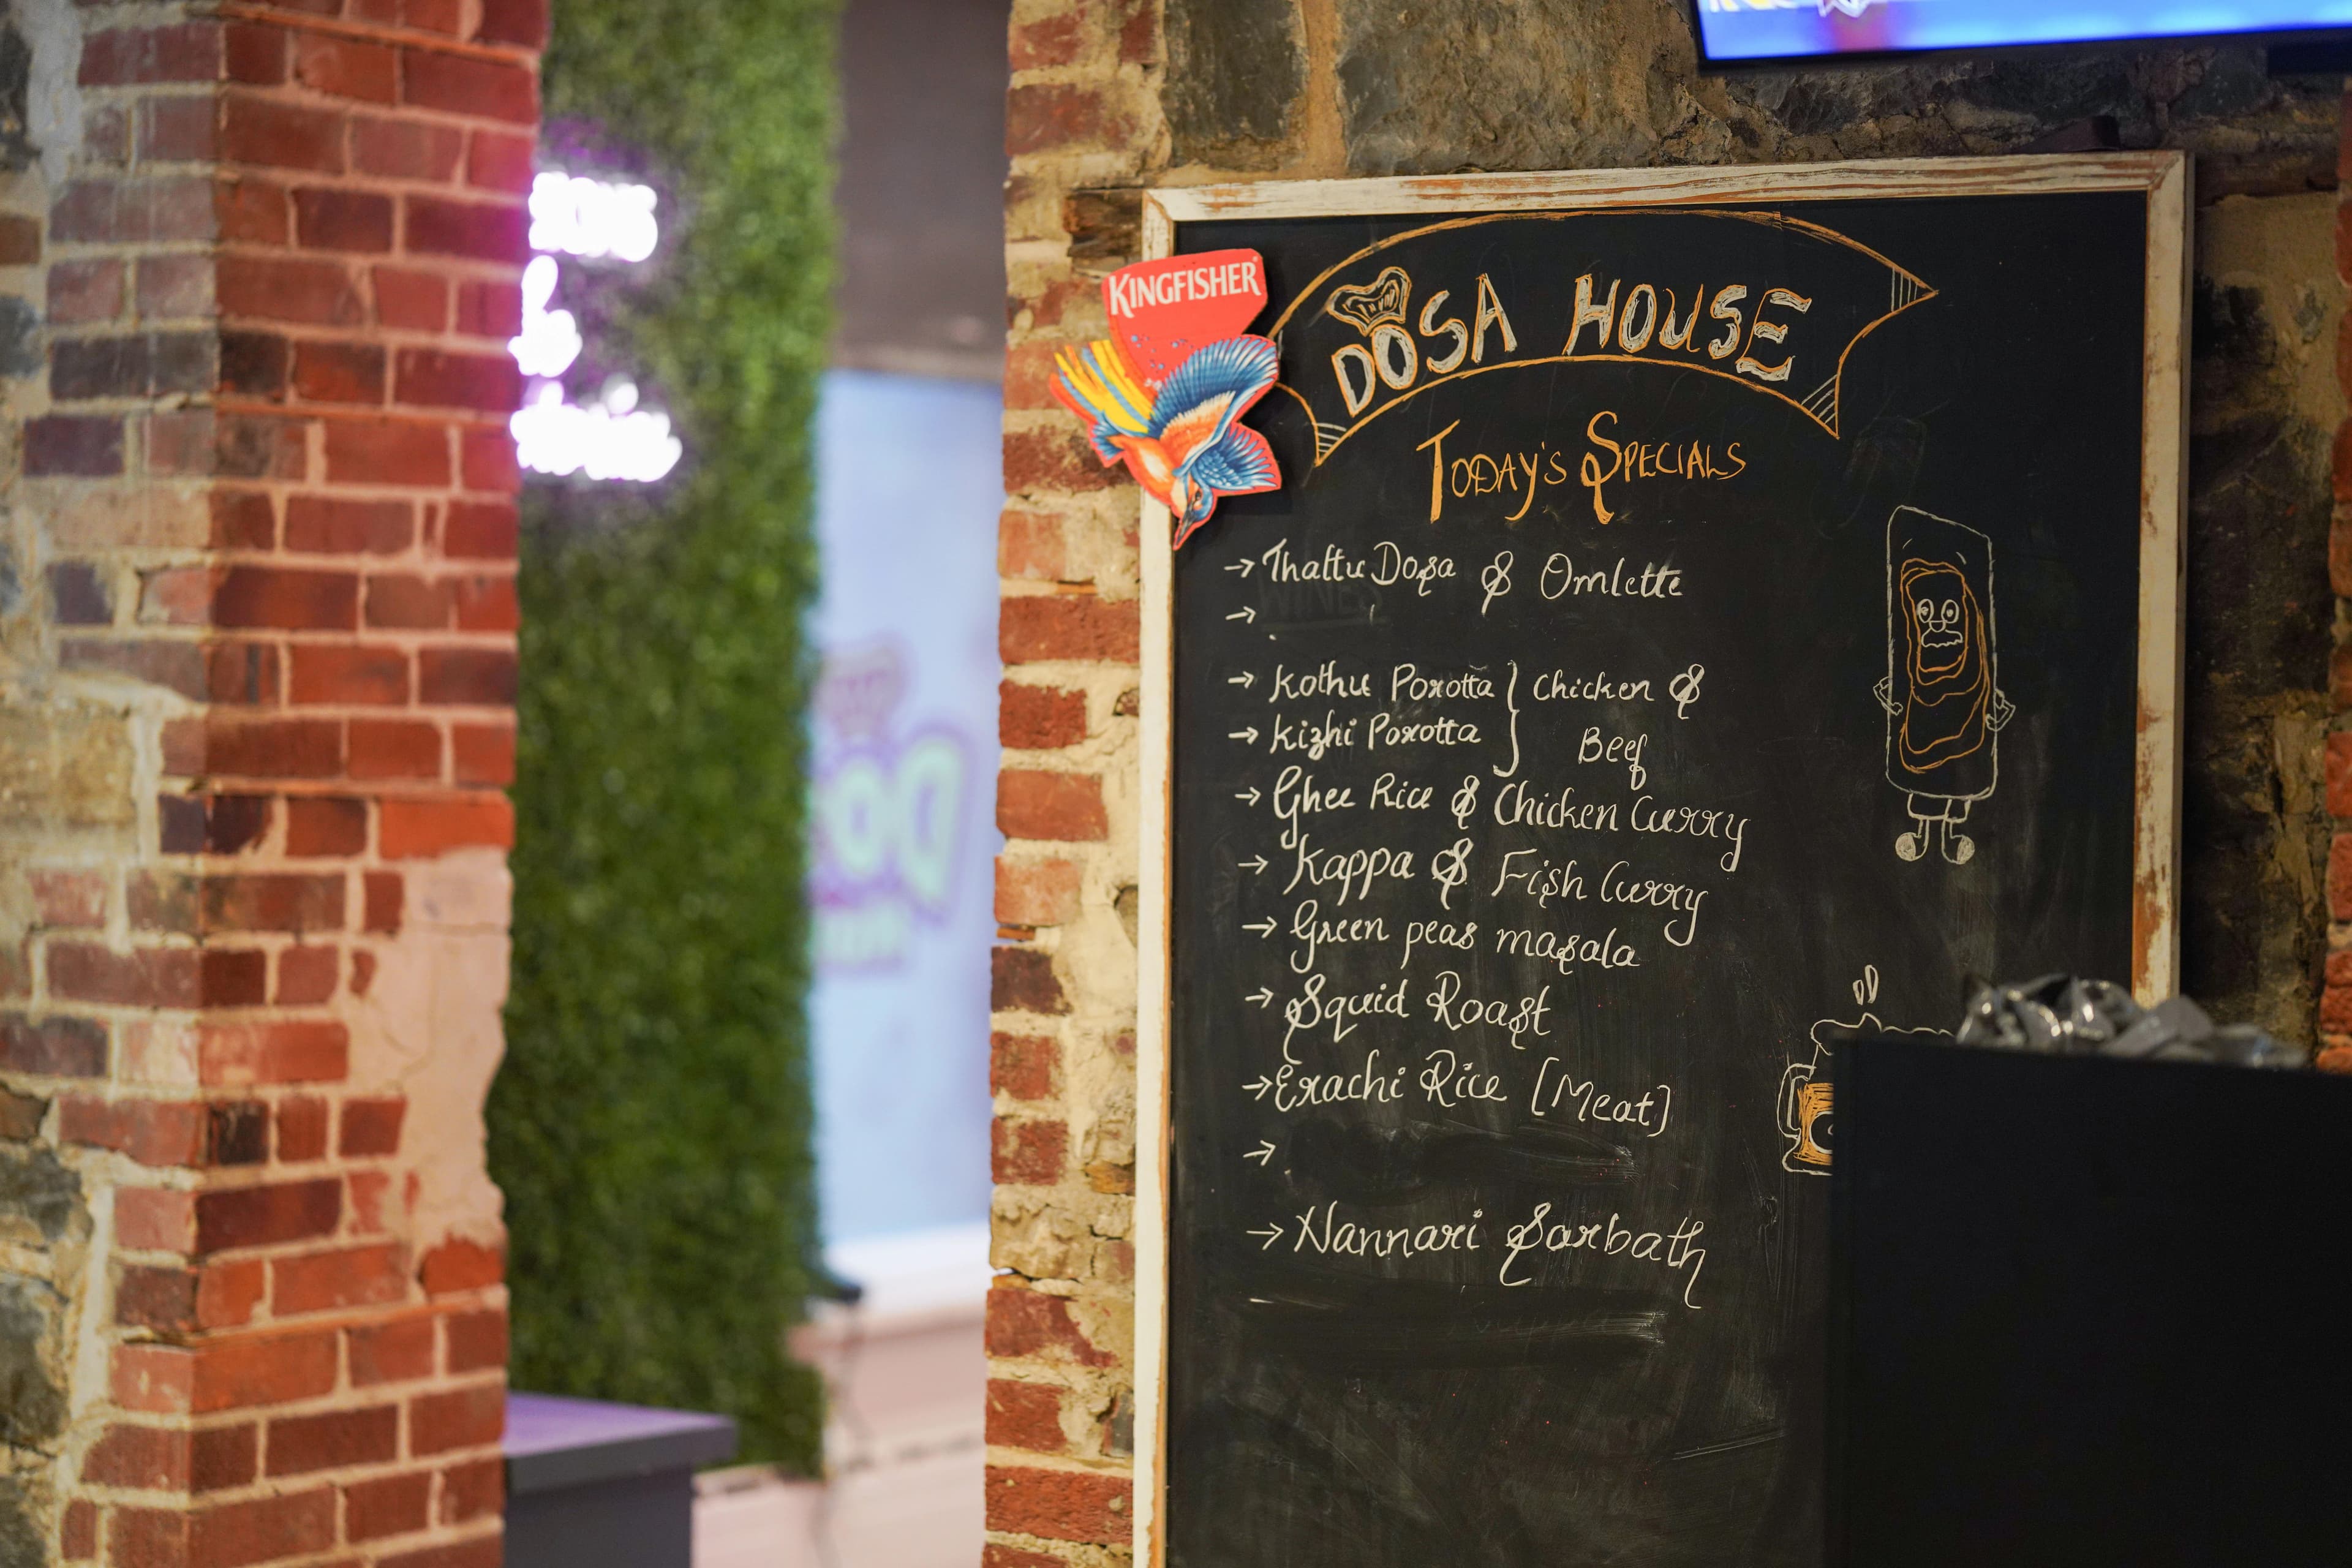 KINGFISHER
DOSA HOUSE
TODAY'S SPECIALS
→ Thattu Dosa & Omlette
→
→ Kothu Porotta } Chicken &
→ Kizhi Porotta } Beef
→ Ghee Rice & Chicken Curry
→ Kappa & Fish Curry
→ Green peas masala
→ Squid Roast
→ Erachi Rice [Meat]
→
→ Nannari Sarbath